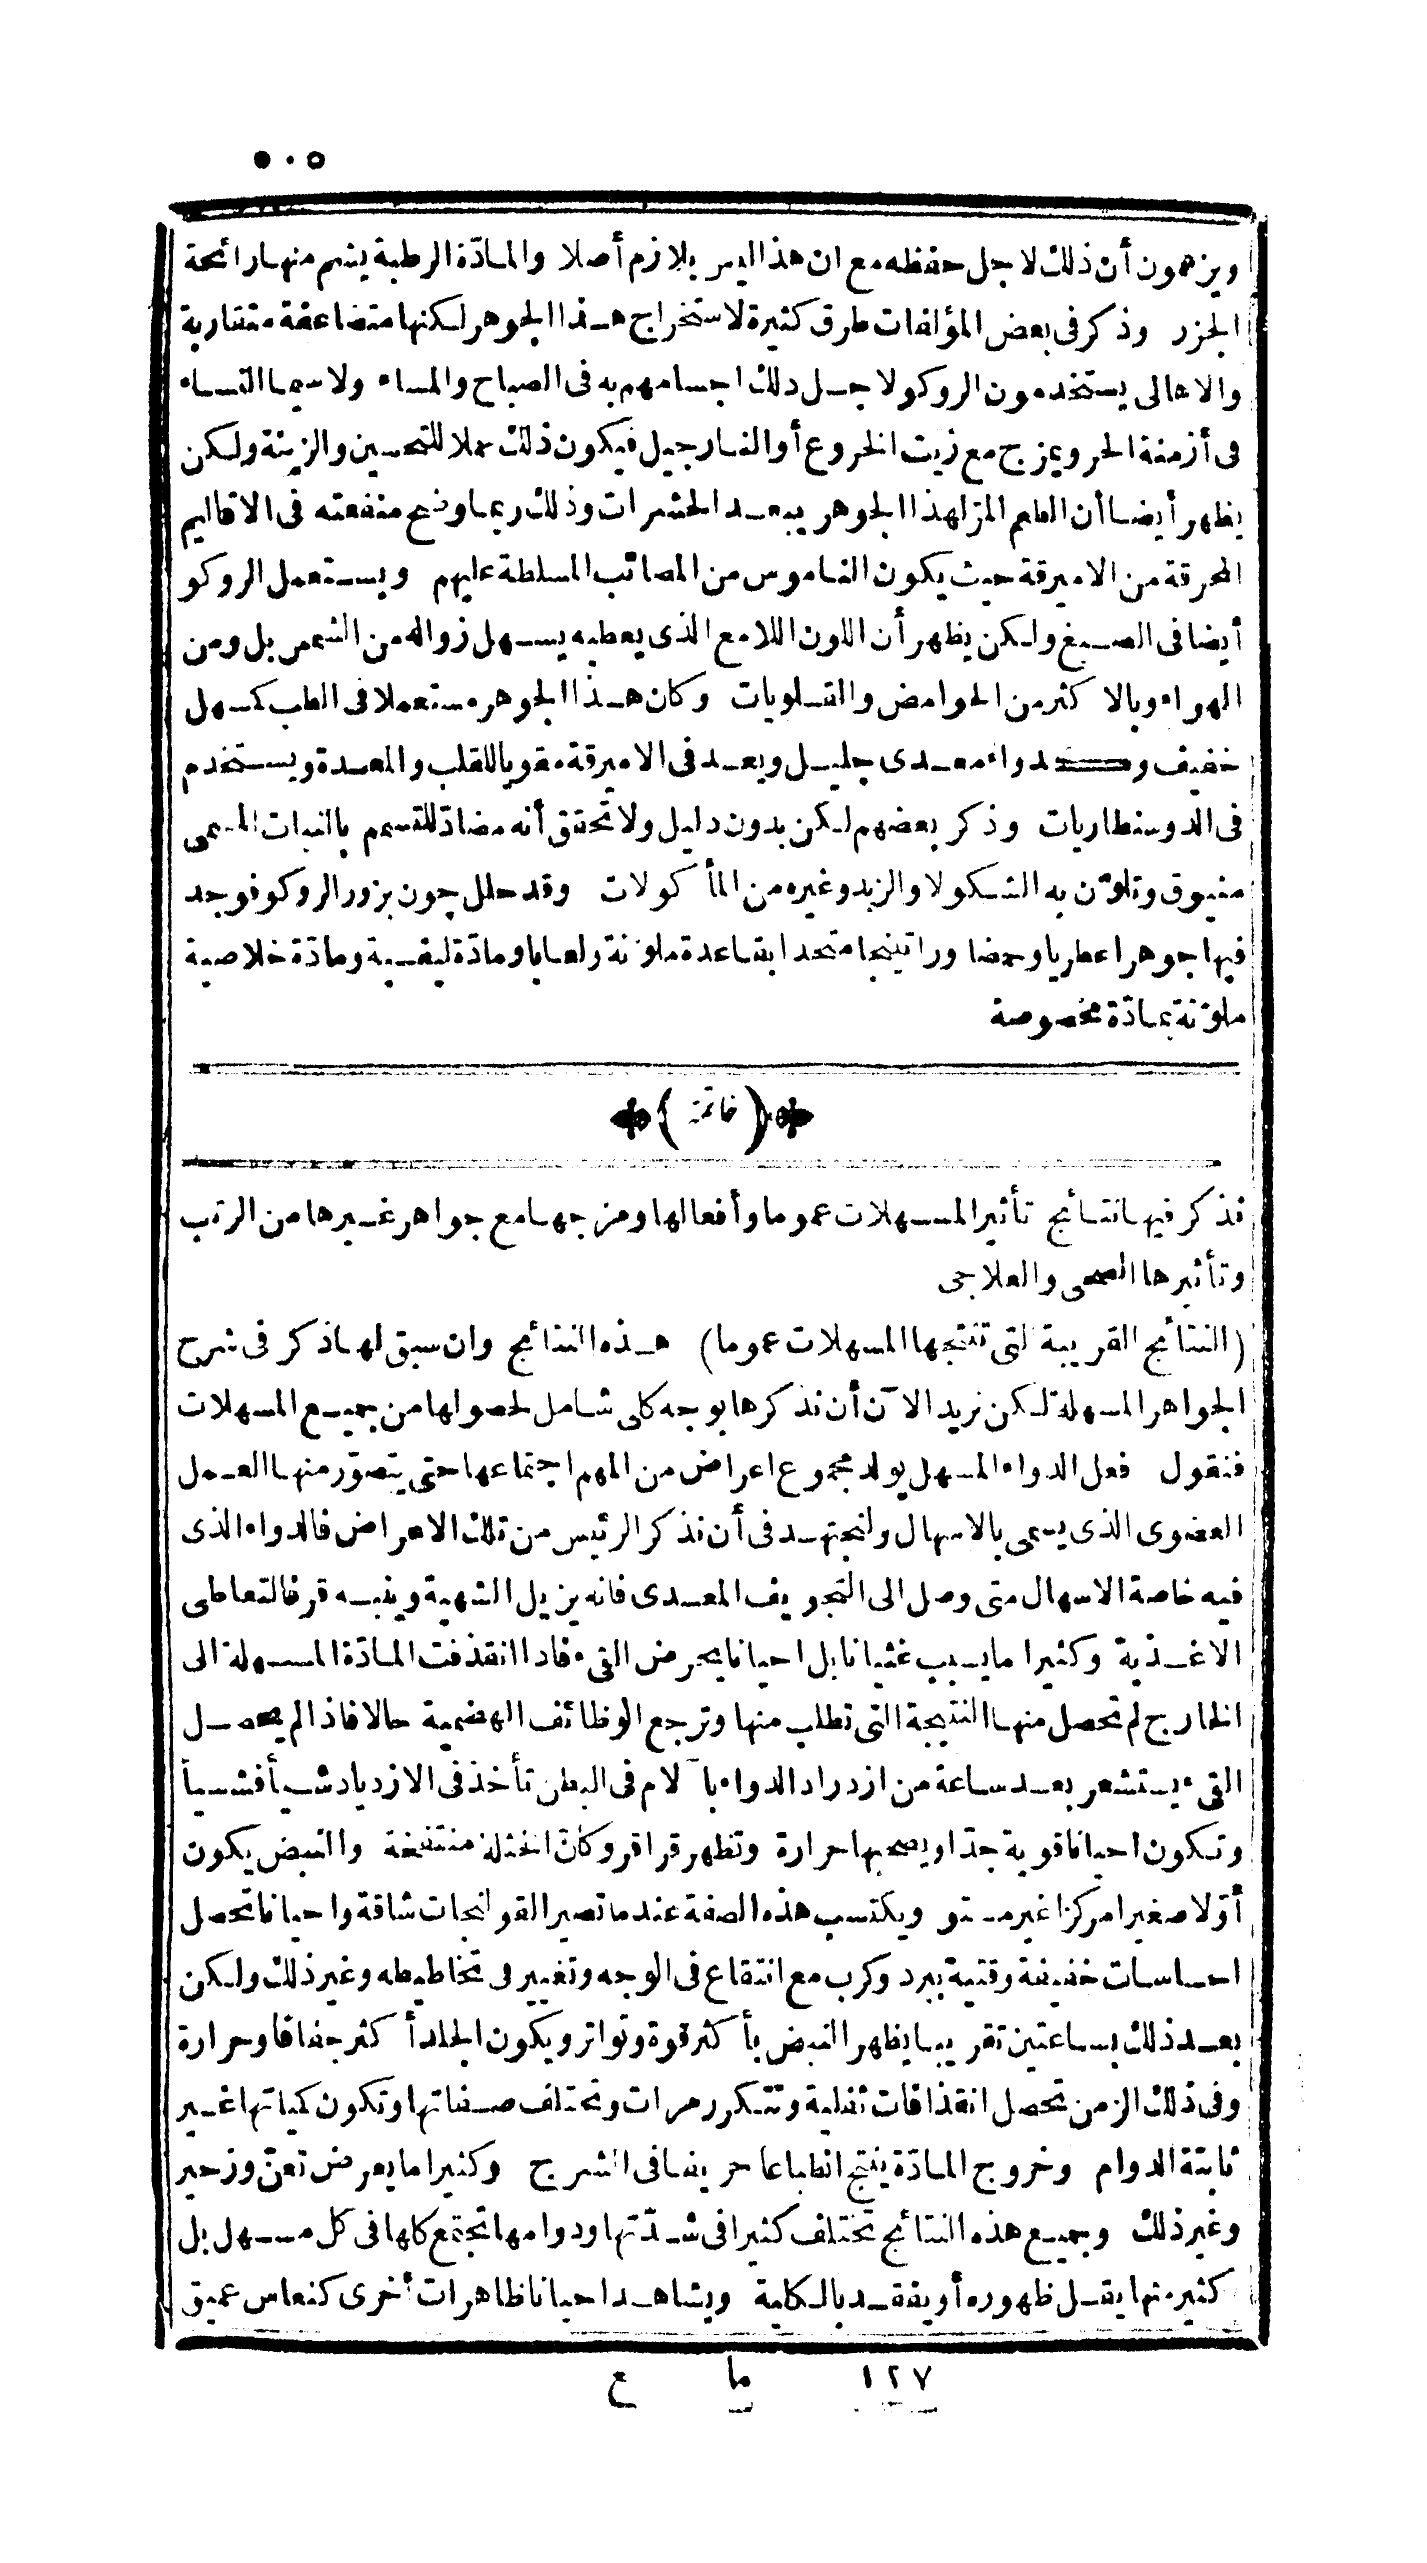 ٥٠٥
ويزعمون أن ذلك لاجل حفظه مع ان هذا ليس بلازم أصلا والمادّة الرطبة يشم منها رائحة
الجزر وذكر فى بعض المؤلفات طرق كثيرة لاستخراج هذا الجوهر لكنها متضاعفة متقاربة
والاهالى يستخدمون الروكو لاجل دلك اجسامهم به فى الصباح والمساء ولاسيما النساء
فى أزمنة الحر ويمزج مع زيت الخروع أو النارجيل فيكون ذلك عملا للتحسين والزينة ولكن
يظهر أيضا أن الطعم المز لهذا الجوهر يبعد الحشرات وذلك ربما وضع منفعته فى الاقاليم
المحرقة من الاميرقة حيث يكون الناموس من المصائب المسلطة عليهم ويستعمل الروكو
أيضا فى الصبغ ولكن يظهر أن اللون اللامع الذى يعطيه يسهل زواله من الشمس بل ومن
الهواء وبالاكثر من الحوامض والقلويات وكان هذا الجوهر مستعملا فى الطب كمسهل
خفيف وكدواء معدى جليل ويعد فى الاميرقة مقويا للقلب والمعدة ويستخدم
فى الدوسنطاريات وذكر بعضهم لكن بدون دليل ولا تحقق أنه مضادّ للتسمم بالنبات المسمى
منيوق وتلوّن به الشكولا والزبد وغيره من المأكولات وقد حلل جون بزور الروكو فوجد
فيها جوهرا عطريا وحمضا وراتينجا متحدا بقاعدة ملوّنة ولعابا ومادّة ليفية ومادّة خلاصية
ملوّنة بمادّة مخصوصة
(خاتمة)
نذكر فيها نتائج تأثير المسهلات عموما وأفعالها ومزجها مع جواهر غيرها من الرتب
وتأثيرها الصحى والعلاجى
(النتائج القريبة التى تنتجها المسهلات عموما) هذه النتائج وان سبق لها ذكر فى شرح
الجواهر المسهلة لكن نريد الآن أن نذكرها بوجه كلى شامل لحصولها من جميع المسهلات
فنقول فعل الدواء المسهل يولد مجموع اعراض من المهم اجتماعها حتى يتصوّر منها العمل
العضوى الذى يسمى بالاسهال ولنجتهد فى أن نذكر الرئيس من تلك الاعراض فالدواء الذى
فيه خاصة الاسهال متى وصل الى التجويف المعدى فانه يزيل الشهية وينبه قرفا لتعاطى
الاغذية وكثيرا ما يسبب غثيانا بل احيانا يحرض القىء فاذا انقذفت المادّة المسهلة الى
الخارج لم تحصل منها النتيجة التى تطلب منها وترجع الوظائف الهضمية حالا فاذا لم يحصل
القىء يستشعر بعد ساعة من ازدراد الدواء بآلام فى البطن تأخذ فى الازدياد شيأ فشيأ
وتكون احيانا قوية جدّا ويصحبها حرارة وتظهر قراقر وكأنّ الخثلة منتفخة والنبض يكون
أوّلا صغيرا مركزا غير مستو ويكتسب هذه الصفة عندما تصير القولنجات شاقة واحيانا تحصل
احساسات خفيفة وقتية ببرد وكرب مع انتقاع فى الوجه وتغيير فى تخاطيطه وغير ذلك ولكن
بعد ذلك بساعتين تقريبا يظهر النبض بأكثر قوة وتواتر ويكون الجلد أكثر جفافا وحرارة
وفى ذلك الزمن تحصل انقذافات ثفلية وتتكرر مرات وتختلف صفاتها وتكون كمياتها غير
ثابتة الدوام وخروج المادّة ينتج انطباعا حريفا فى الشرج وكثيرا ما يعرض تعنّ وزحير
وغير ذلك وجميع هذه النتائج تختلف كثيرا فى شدّتها ودوامها تجتمع كلها فى كل مسهل بل
كثير منها يقل ظهوره أو يفقد بالكلية ويشاهد احيانا ظاهرات أخرى كنعاس عميق
١٢٧ ما ع